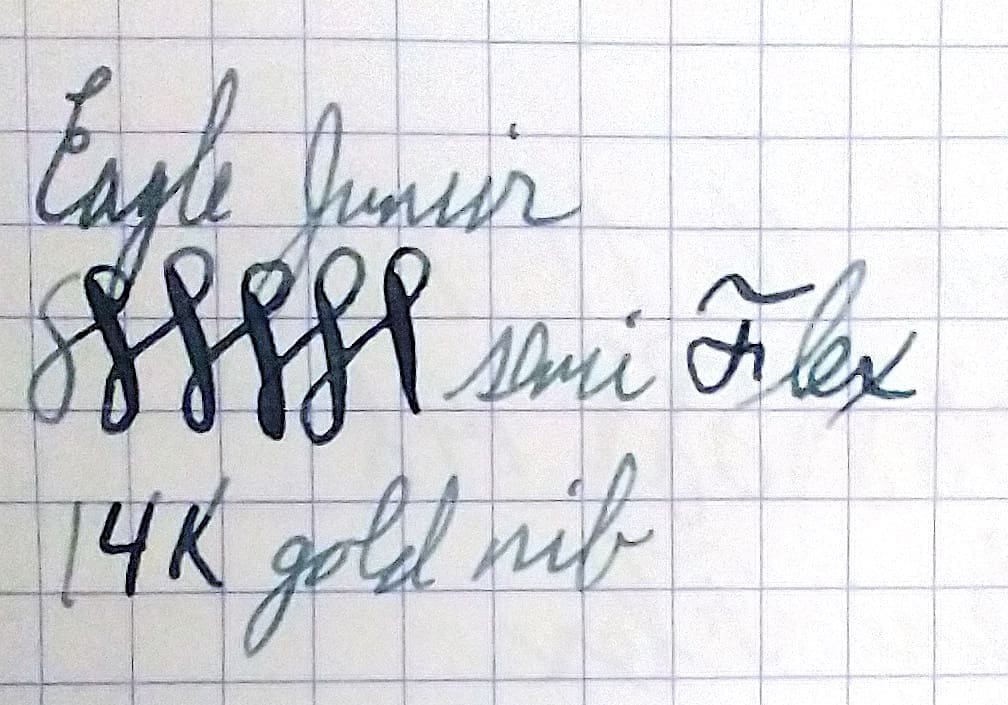 Eagle Junior
semi Flex
14K gold nib